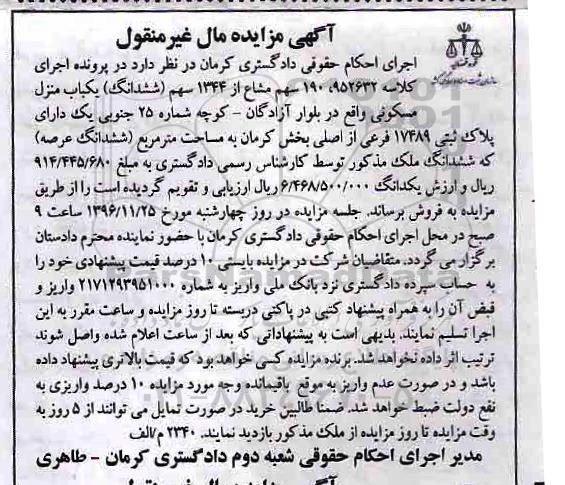 آگهی مزایده مال غیرمنقول
اجرای احکام حقوقی دادگستری کرمان در نظر دارد در پرونده اجرای
کلاسه ۹۵۲۶۳۲، ۱۹۰ سهم مشاع از ۱۳۴۴ سهم (ششدانگ) یکباب منزل
مسکونی واقع در بلوار آزادگان - کوچه شماره ۲۵ جنوبی یک دارای
پلاک ثبتی ۱۷۴۸۹ فرعی از اصلی بخش کرمان به مساحت مترمربع (ششدانگ عرصه)
که ششدانگ ملک مذکور توسط کارشناس رسمی دادگستری به مبلغ ۹۱۴/۴۴۵/۶۸۰
ریال و ارزش یکدانگ ۶/۴۶۸/۵۰۰/۰۰۰ ریال ارزیابی و تقویم گردیده است را از طریق
مزایده به فروش برساند. جلسه مزایده در روز چهارشنبه مورخ ۱۳۹۶/۱۱/۲۵ ساعت ۹
صبح در محل اجرای احکام حقوقی دادگستری کرمان با حضور نماینده محترم دادستان
برگزار می گردد. متقاضیان شرکت در مزایده بایستی ۱۰ درصد قیمت پیشنهادی خود را
به حساب سپرده دادگستری نزد بانک ملی واریز به شماره ۲۱۷۱۲۹۳۹۵۱۰۰۰ واریز و
قبض آن را به همراه پیشنهاد کتبی در پاکتی دربسته تا روز مزایده و ساعت مقرر به این
اجرا تسلیم نمایند. بدیهی است به پیشنهاداتی که بعد از ساعت اعلام شده واصل شوند
ترتیب اثر داده نخواهد شد. برنده مزایده کسی خواهد بود که قیمت بالاتری پیشنهاد داده
باشد و در صورت عدم واریز به موقع باقیمانده وجه مورد مزایده ۱۰ درصد واریزی به
نفع دولت ضبط خواهد شد. ضمنا طالبین خرید در صورت تمایل می توانند از ۵ روز به
وقت مزایده تا روز مزایده از ملک مذکور بازدید نمایند. ۲۳۴۰ م/الف
مدیر اجرای احکام حقوقی شعبه دوم دادگستری کرمان - طاهری